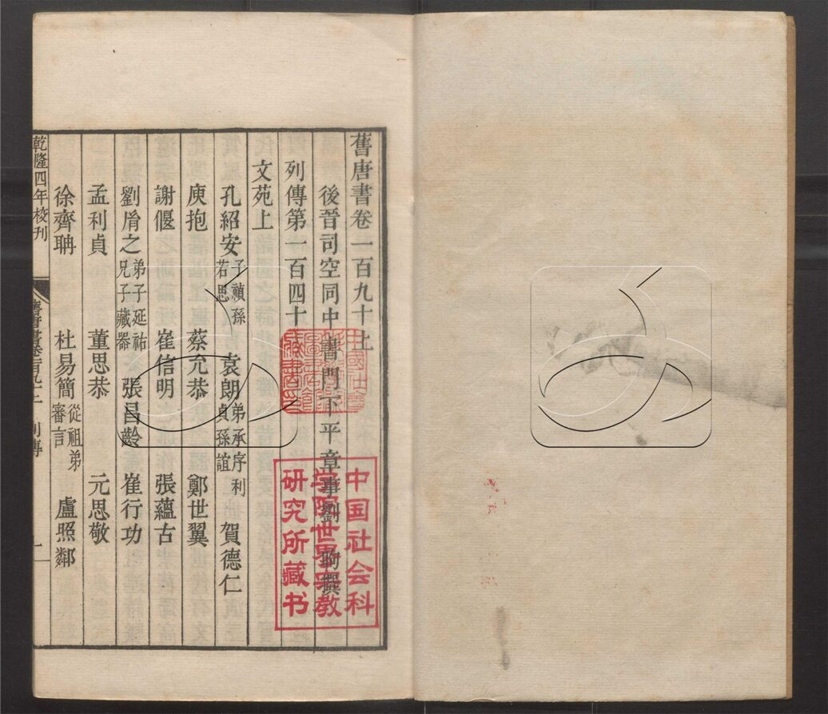 舊唐書卷一百九十上
後晉司空同中書門下平章事劉昫撰
列傳第一百四十
文苑上
孔紹安子禎孫若思 袁朗弟承序利貞孫誼 賀德仁
庾抱 蔡允恭 鄭世翼
謝偃 崔信明 張蘊古
劉胤之弟子延祐兄子藏器 張昌齡 崔行功
孟利貞 董思恭 元思敬
徐齊聃 杜易簡從祖弟審言 盧照鄰
乾隆四年校刊
舊唐書卷一百九十上 列傳
一
中国社会科学院世界宗教研究所藏书